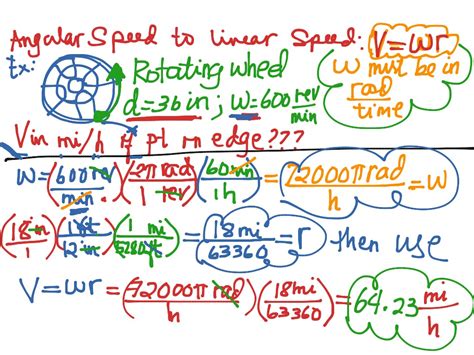 Angular Speed to Linear Speed: V=ωr
Ex: Rotating wheel
d=36in; ω=600 rev/min
ω must be in rad/time
V in mi/h of pt on edge???
ω=(600 rev/min)(2π rad/1 rev)(60 min/1h)=72000π rad/h=ω
(18 in/1)(1ft/12 in)(1 mi/5280ft)=18mi/63360=r then use
V=ωr=(72000π rad/h)(18mi/63360)=64.23 mi/h